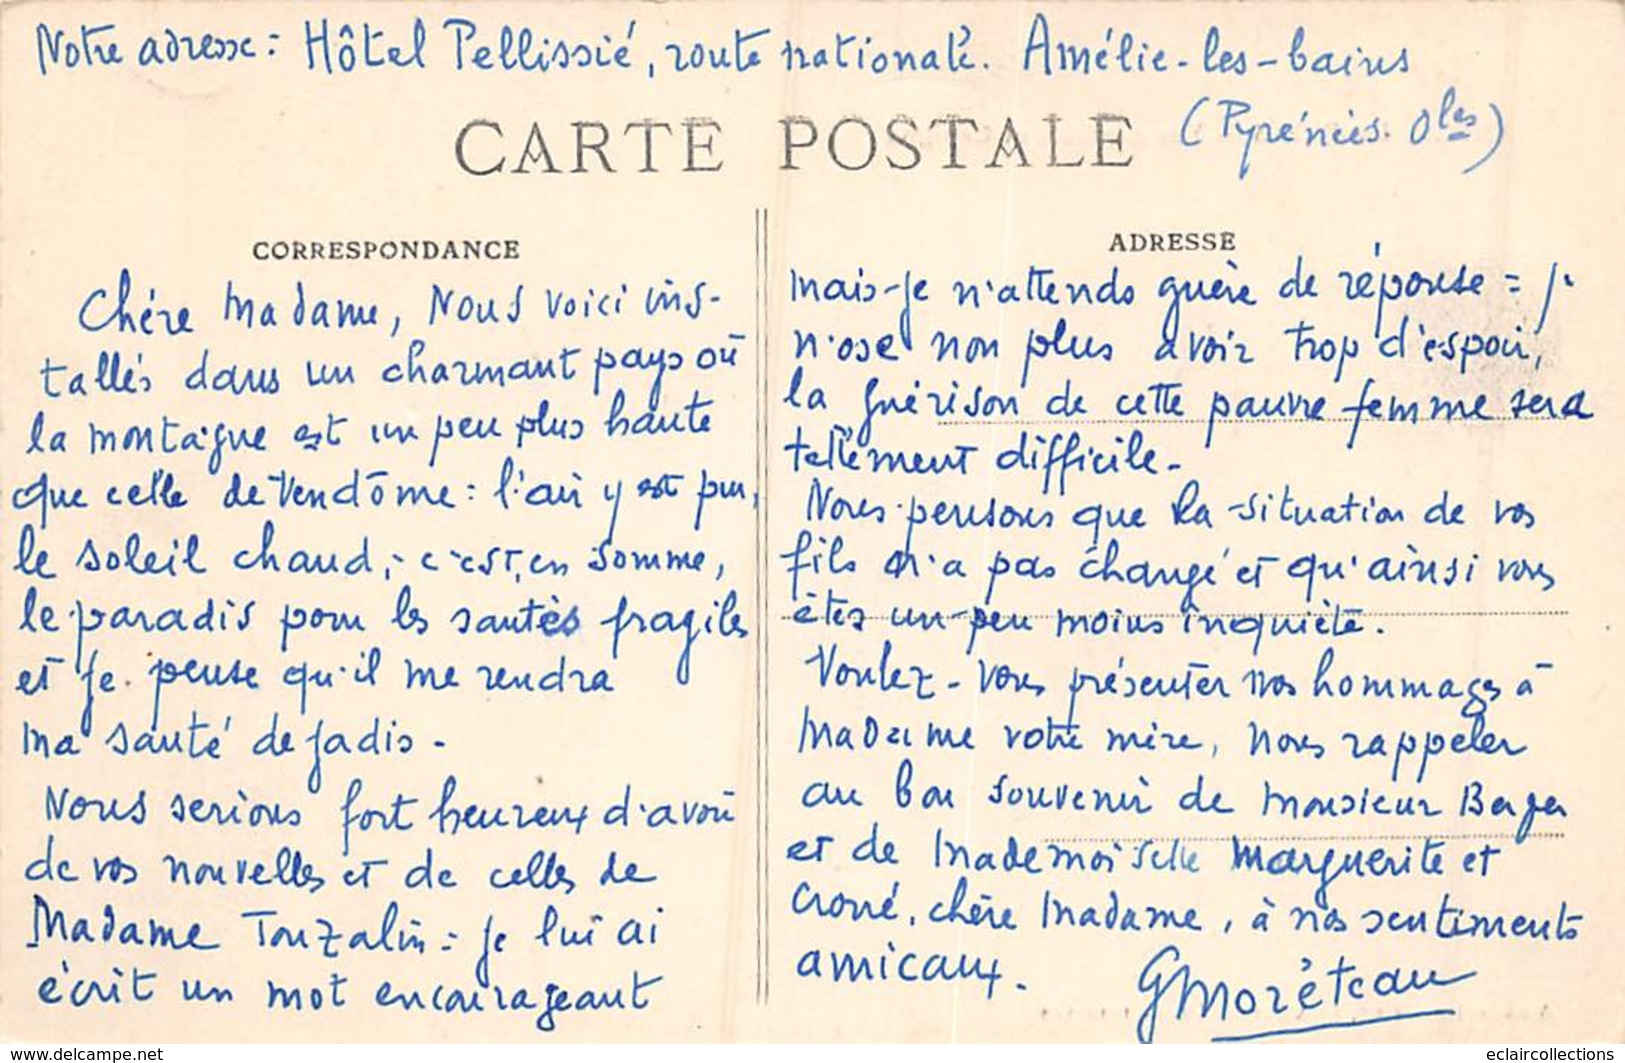 Notre adresse : Hôtel Pellissié, route nationale. Amélie-les-bains
(Pyrénées. Oles)
CARTE POSTALE
CORRESPONDANCE
Chère Madame, Nous voici ins-
tallés dans un charmant pays où
la montaigne est un peu plus haute
que celle de Vendôme : l'air y est pur,
le soleil chaud ; c'est, en somme,
le paradis pour les santés fragiles
et je pense qu'il me rendra
ma santé de jadis -
Nous serions fort heureux d'avoir
de vos nouvelles et de celles de
Madame Touzalin : je lui ai
écrit un mot encourageant
ADRESSE
mais je n'attends guère de réponse : je
n'ose non plus avoir trop d'espoir,
la guérison de cette pauvre femme sera
tellement difficile -
Nous pensons que la situation de vos
fils n'a pas changé et qu'ainsi vous
êtes un peu moins inquiète.
Voulez-vous présenter nos hommages à
Madame votre mère, nous rappeler
au bon souvenir de Monsieur Berger
et de Mademoiselle Marguerite et
croire, chère Madame, à nos sentiments
amicaux.
GMoréteau
eclaircollections
www.delcampe.net